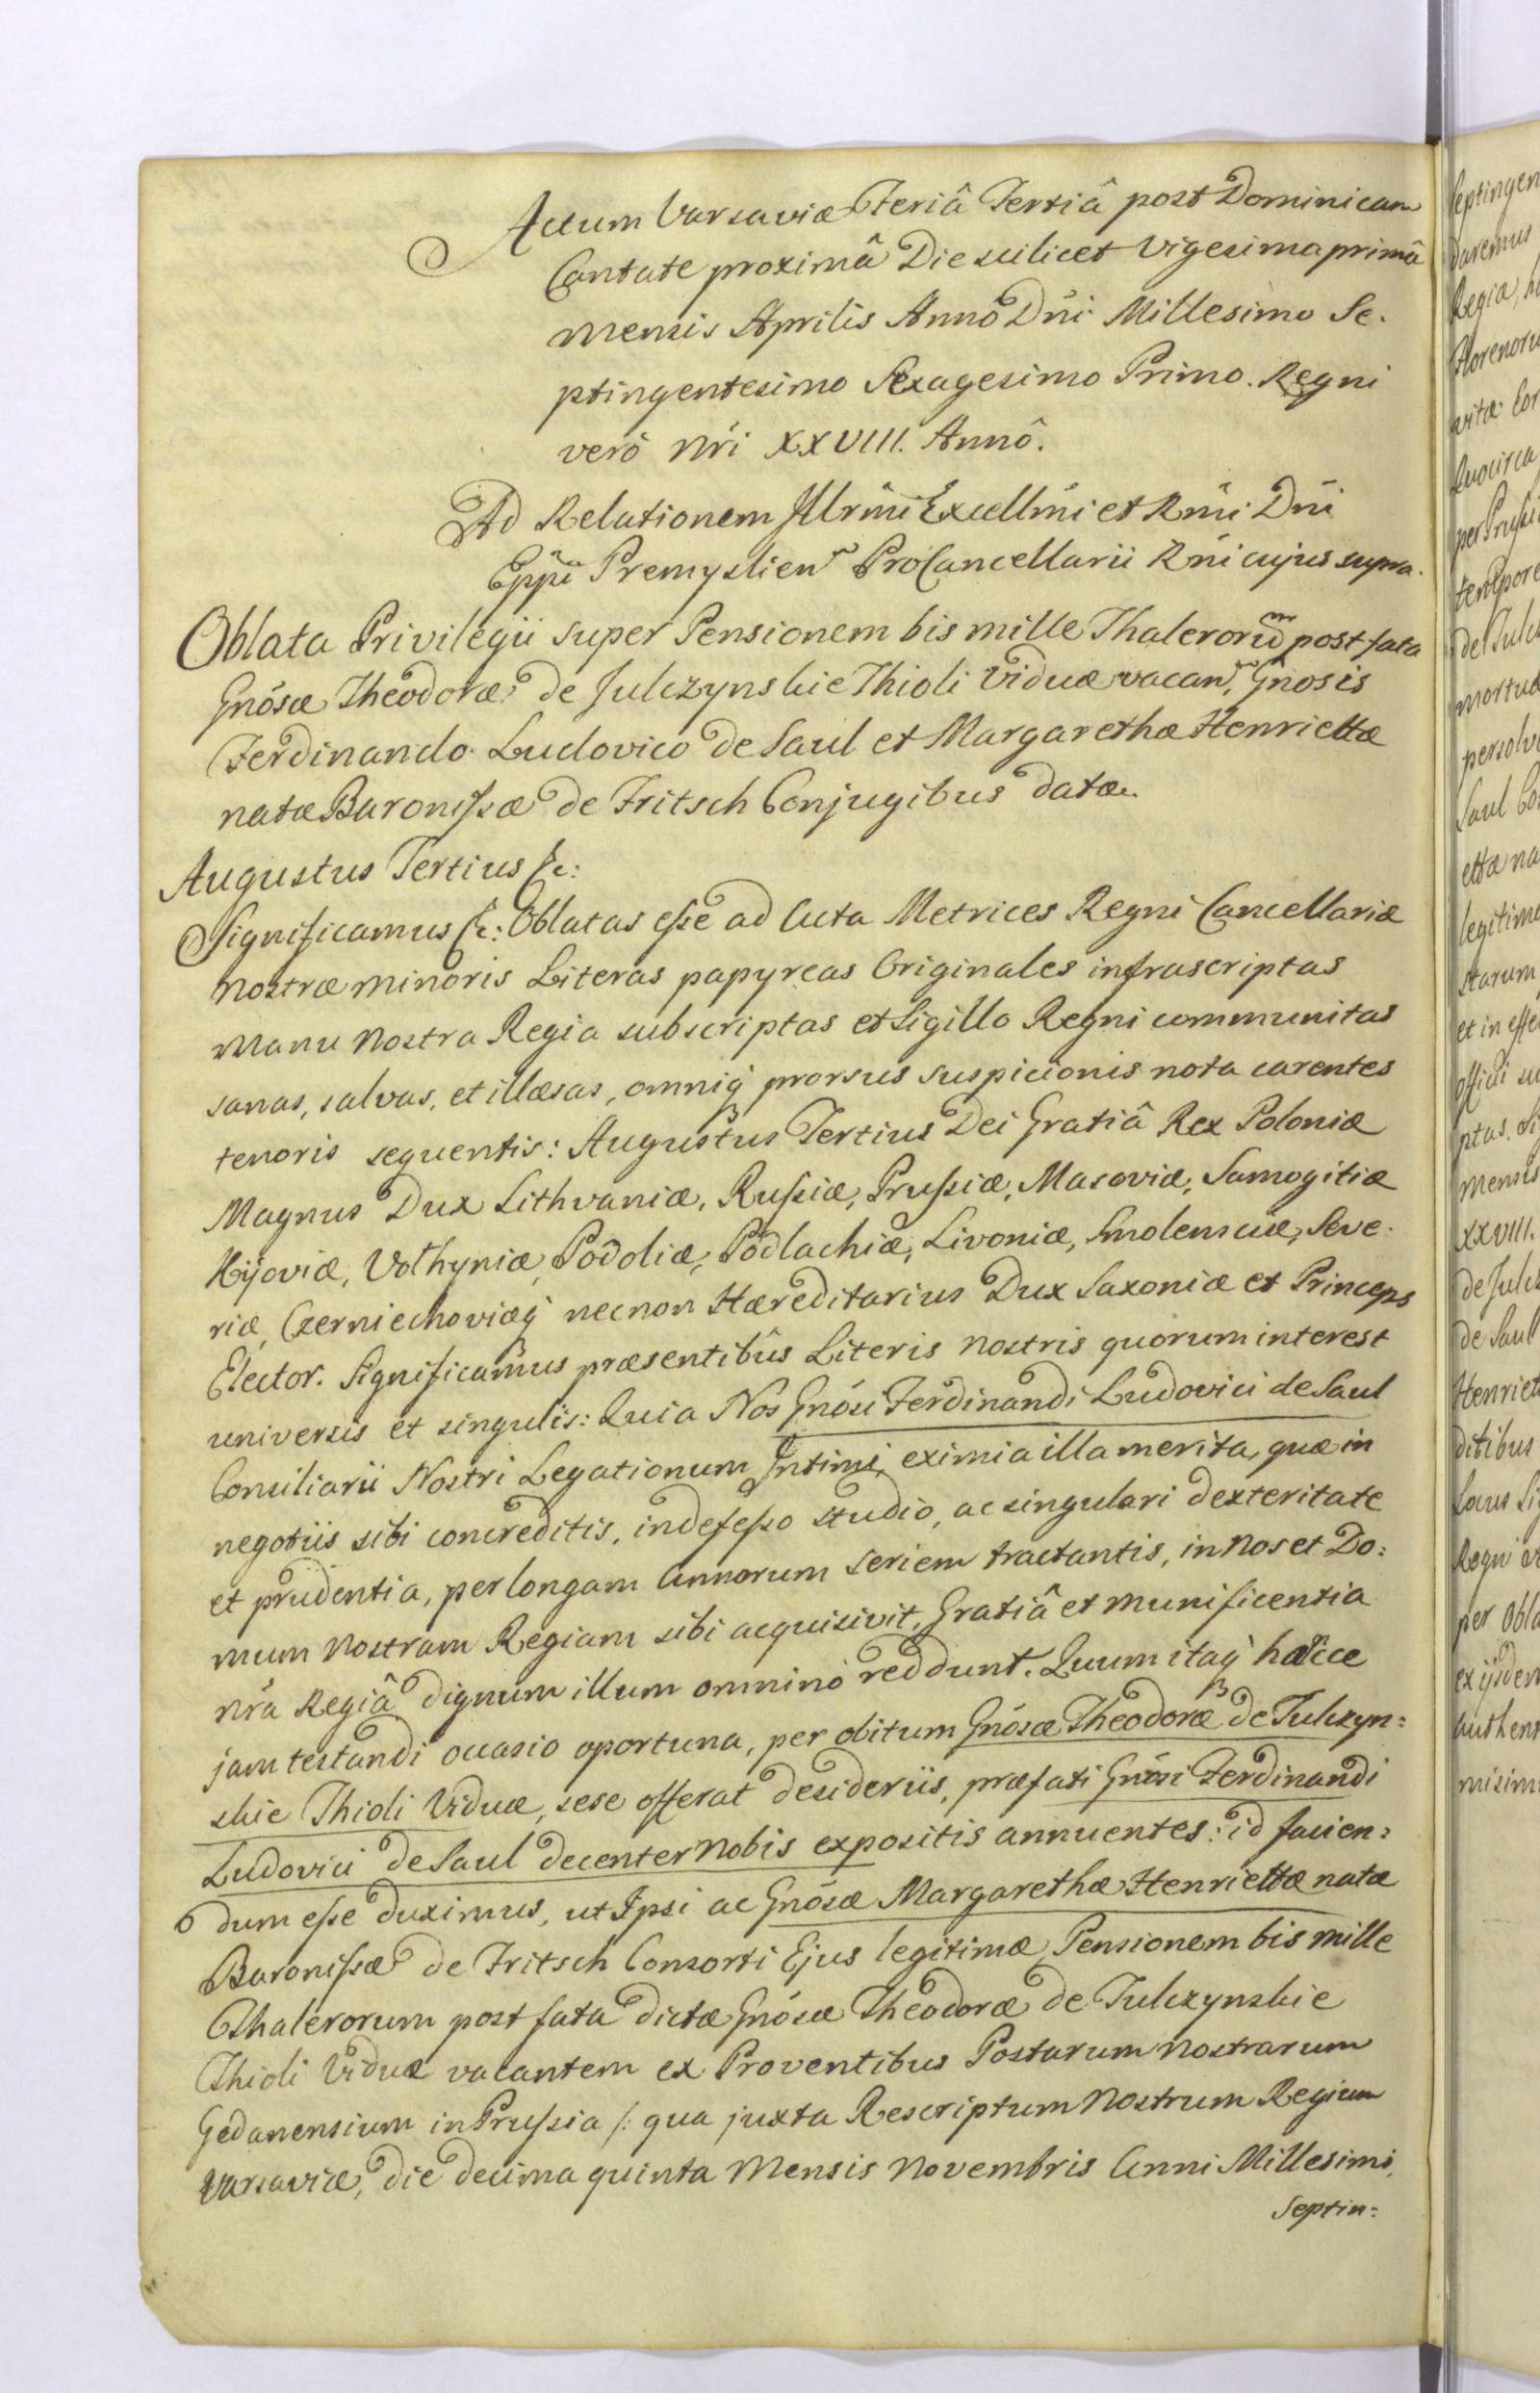 Actum Varsaviæ Feriâ Tertiâ post Dominicam
Cantate proximâ Die scilicet Vigesima primâ
Mensis Aprilis Annô Dñi Millesimo Se-
ptingentesimo Sexagesimo Primo. Regni
verò Nri XXVIII. Annô.
Ad Relationem Illrmi Excellmi et Rmi Dñi
Eppi Premyslien ProCancellarii Rñi cujus supra.
Oblata Privilegii super Pensionem bis mille Thalerorum post fata
Gnósæ Theodoræ de Julczynskie Thioli Viduæ vacan, Gnosis
Ferdinando Ludovico de Saul et Margarethæ Henriettæ
natæ Baronissæ de Fritsch Conjugibus datæ.
Augustus Tertius &c:
Significamus &c: Oblatas esse ad Acta Metrices Regni Cancellariæ
Nostræ minoris Literas papyreas Originales infrascriptas
Manu Nostra Regia subscriptas et Sigillo Regni communitas
sanas, salvas, et illæsas, omniq prorsus suspicionis nota carentes
tenoris sequentis: Augustus Tertius Dei Gratiâ Rex Poloniæ
Magnus Dux Lithvaniæ, Russiæ, Prussiæ, Masoviæ, Samogitiæ
Kijoviæ, Volhyniæ, Podoliæ, Podlachiæ, Livoniæ, Smolensciæ, Seve-
riæ, Czerniechoviæq necnon Hæreditarius Dux Saxoniæ et Princeps
Elector. Significamus præsentibûs Literis Nostris quorum interest
universis et singulis: Quia Nos Gnósi Ferdinandi Ludovici de Saul
Consiliarii Nostri Legationum Intimi, eximia illa merita, quæ in
negotiis sibi concreditis, indefesso studio, ac singulari dexteritate
et prudentia, per longam Annorum Seriem tractantis, in Nos et Do:
mum Nostram Regiam sibi acquisivit, Gratiâ et Munificentia
nra Regiâ dignum illum omninò reddunt. Quum itaq hæcce
jam testandi occasio oportuna, per obitum Gnósæ Theodoræ de Julczyn:
skie Thioli Viduæ, sese offerat desideriis, præfati Gnósi Ferdinandi
Ludovici de Saul decenter Nobis expositis annuentes: id facien:
dum esse duximus, ut Ipsi ac Gnósæ Margarethæ Henriettæ natæ
Baronissæ de Fritsch Consorti Ejus legitimæ, Pensionem bis mille
Thalerorum post fata dictæ Gnósæ Theodoræ de Julczynskie
Thioli Viduæ vacantem ex Proventibus Postarum Nostrarum
Gedanensium in Prussia /: qua juxta Rescriptum Nostrum Regium
Varsaviæ, die decima quinta Mensis Novembris Anni Millesimi,
Septin: